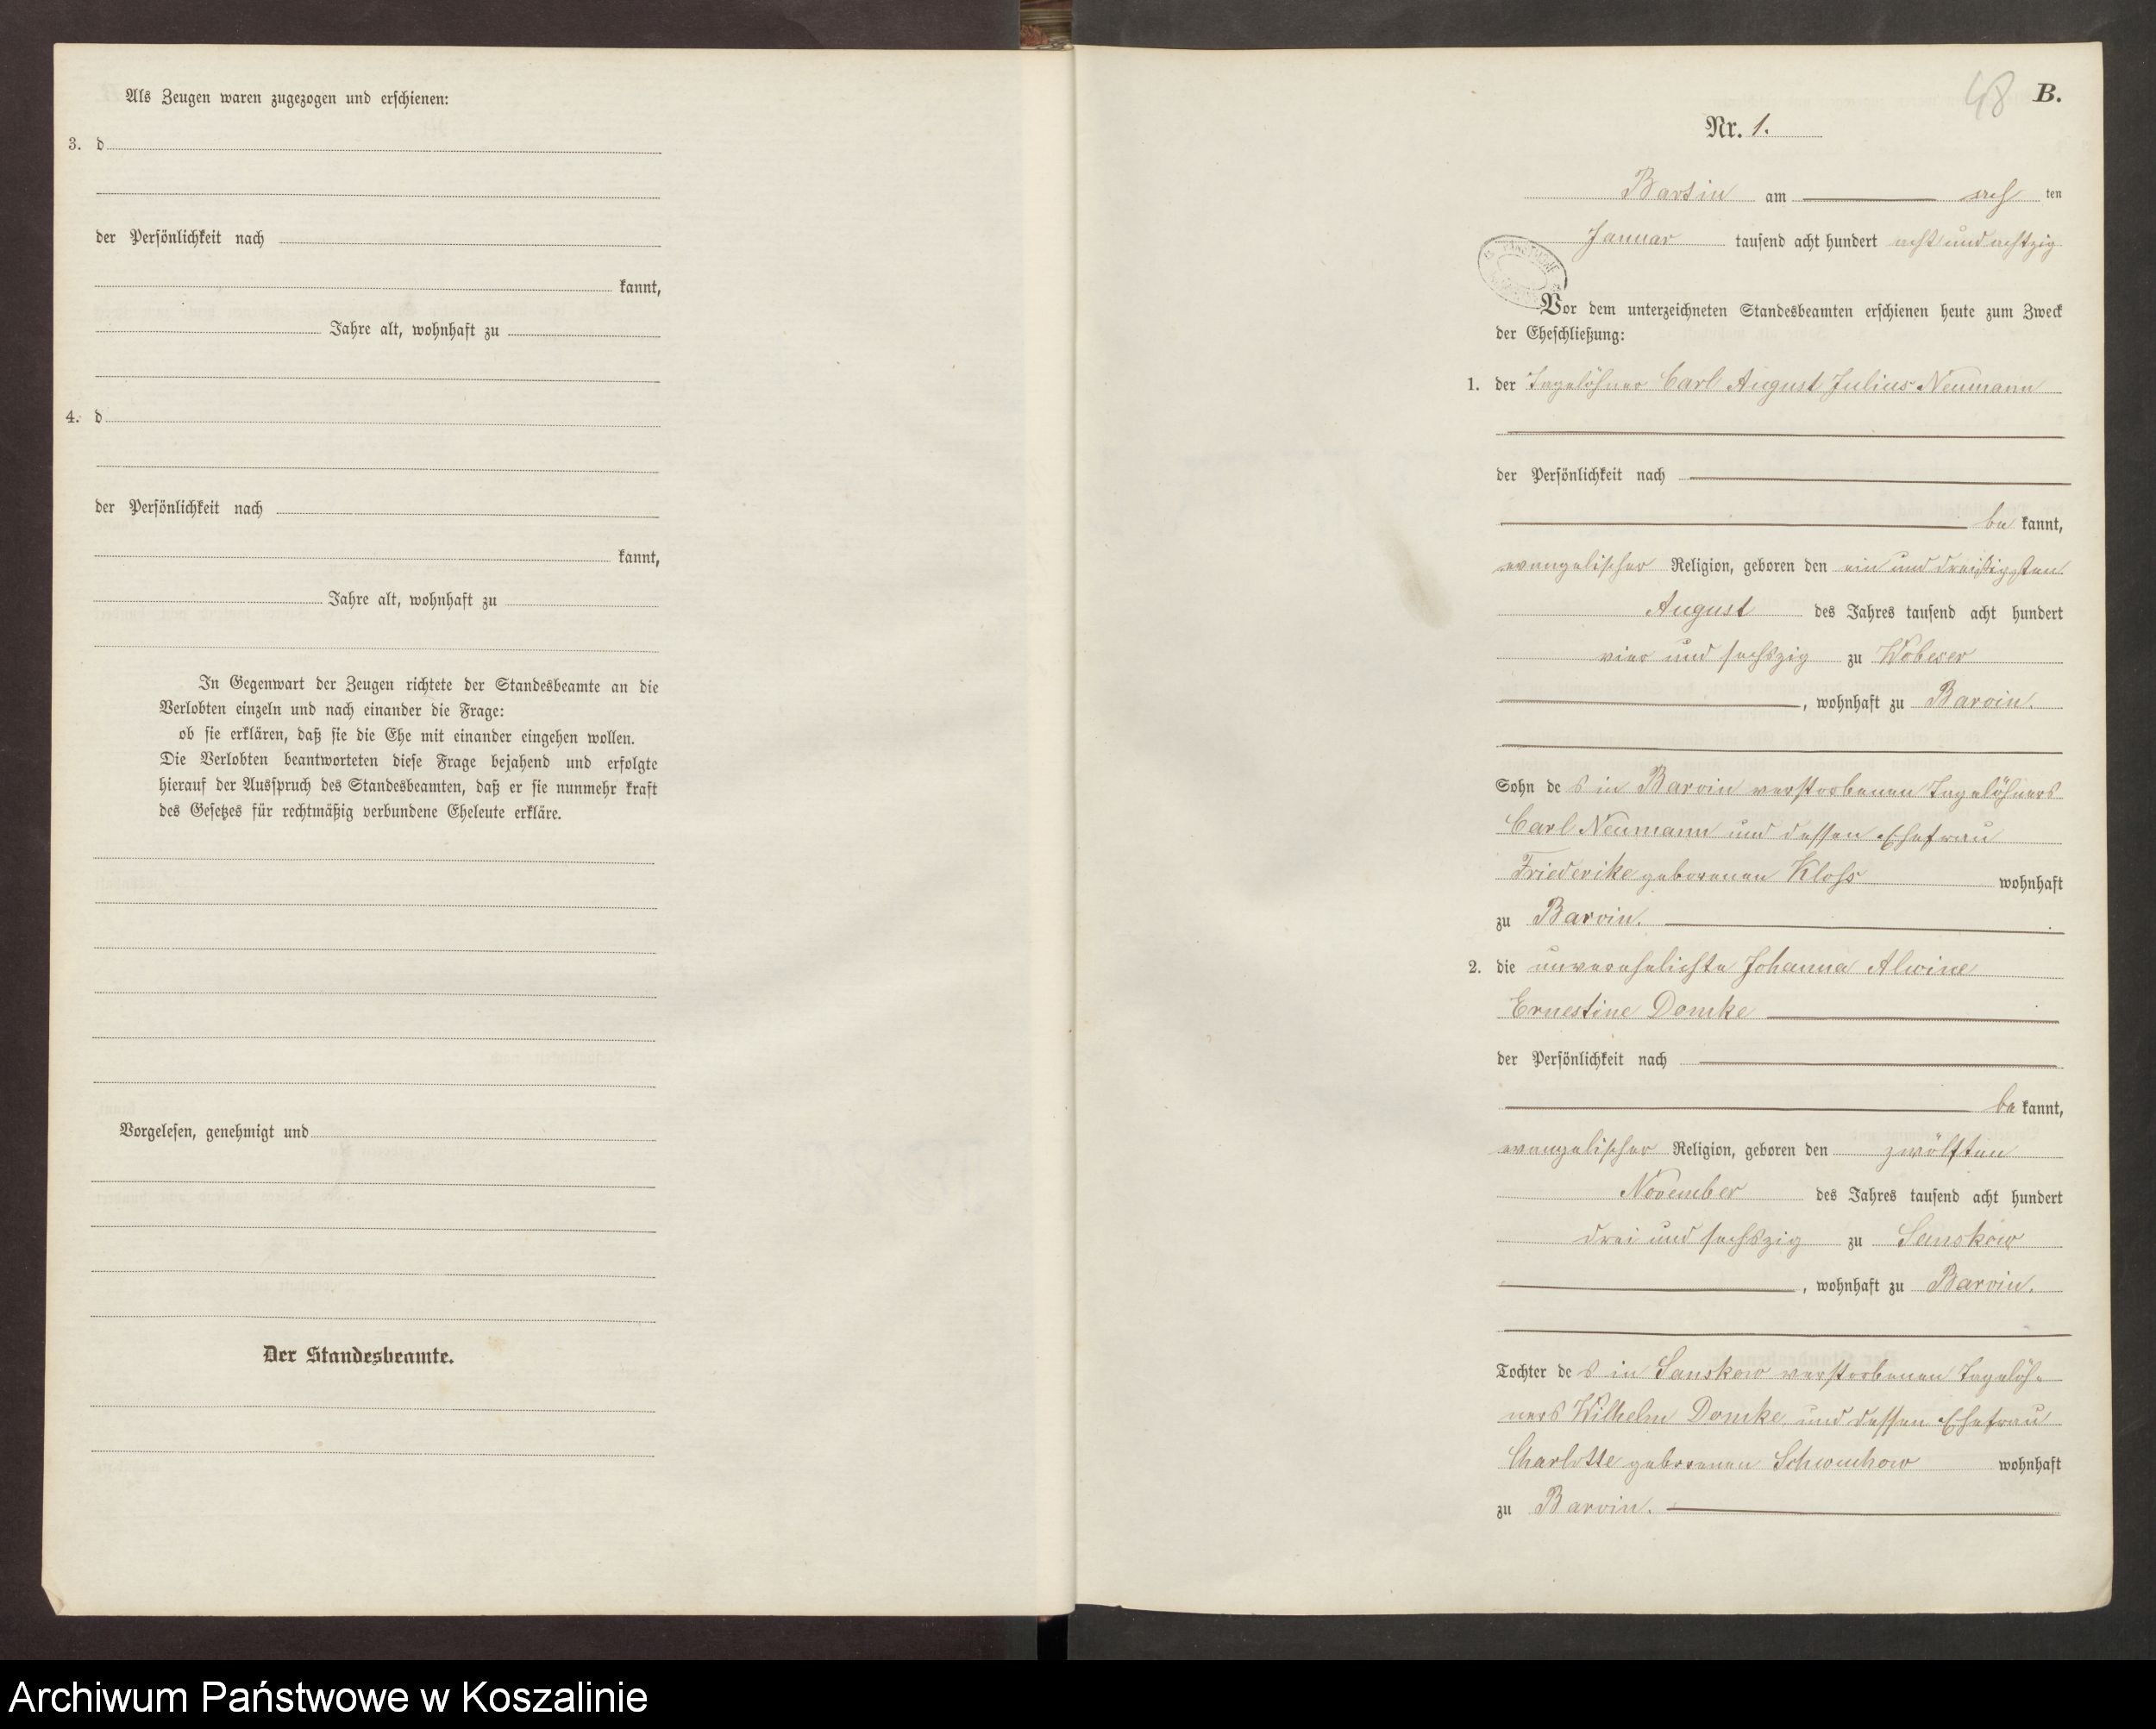 Als Zeugen waren zugezogen und erschienen:
3. d
der Persönlichkeit nach
kannt,
Jahre alt, wohnhaft zu
4. d
der Persönlichkeit nach
kannt,
Jahre alt, wohnhaft zu
In Gegenwart der Zeugen richtete der Standesbeamte an die
Verlobten einzeln und nach einander die Frage:
ob sie erklären, daß sie die Ehe mit einander eingehen wollen.
Die Verlobten beantworteten diese Frage bejahend und erfolgte
hierauf der Ausspruch des Standesbeamten, daß er sie nunmehr kraft
des Gesetzes für rechtmäßig verbundene Eheleute erkläre.
Vorgelesen, genehmigt und
Der Standesbeamte.
48 B.
Nr. 1.
Bartin am ach ten
Januar tausend acht hundert acht und achtzig
Vor dem unterzeichneten Standesbeamten erschienen heute zum Zweck
der Eheschließung:
1. der Tagelöhner Carl August Julius Neumann
der Persönlichkeit nach
be kannt,
evangelischer Religion, geboren den ein und dreißigsten
August des Jahres tausend acht hundert
vier und sechszig zu Wobeser
, wohnhaft zu Barvin.
Sohn de s in Barvin verstorbenen Tagelöhners
Carl Neumann und dessen Ehefrau
Friederike geborenen Kloss wohnhaft
zu Barvin.
2. die unverehelichte Johanna Alwine
Ernestine Domke
der Persönlichkeit nach
be kannt,
evangelischer Religion, geboren den zwölften
November des Jahres tausend acht hundert
drei und sechszig zu Sanskow
, wohnhaft zu Barvin.
Tochter de s in Sanskow verstorbenen Tagelöh-
ners Wilhelm Domke und dessen Ehefrau
Charlotte geborenen wohnhaft
zu Barvin.
Archiwum Państwowe w Koszalinie